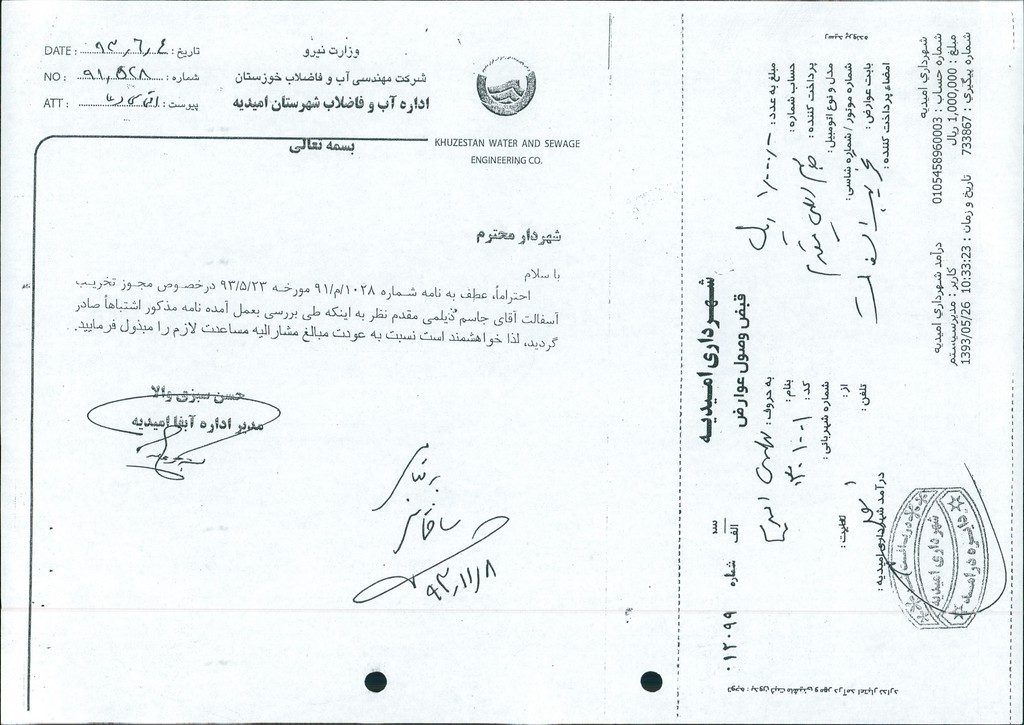 وزارت نیرو
شرکت مهندسی آب و فاضلاب خوزستان
اداره آب و فاضلاب شهرستان امیدیه
تاریخ : ۹۳/۶/۴ DATE :
شماره : NO :
پیوست : ATT :
KHUZESTAN WATER AND SEWAGE
ENGINEERING CO.
بسمه تعالی
شهردار محترم
با سلام
احتراماً، عطف به نامه شماره ۹۱/م/۱۰۲۸ مورخه ۹۳/۵/۲۳ درخصوص مجوز تخریب
آسفالت آقای جاسم دیلمی مقدم نظر به اینکه طی بررسی بعمل آمده نامه مذکور اشتباهاً صادر
گردید، لذا خواهشمند است نسبت به عودت مبالغ مشارالیه مساعدت لازم را مبذول فرمایید.
حسن سبزی والا
مدیر اداره آبفا امیدیه
۹۳/۱۱/۸
شهرداری امیدیه
قبض وصول عوارض
شماره الف ۰۱۲۰۹۹
مبلغ به عدد :
به حروف :
حساب شماره :
بنام :
کد :
پرداخت کننده :
شماره شهربانی :
مدل و نوع اتومبیل :
شماره موتور / شماره شاسی :
از :
بابت عوارض :
تلفن :
امضاء پرداخت کننده :
درآمد شهرداری امیدیه :
شهرداری امیدیه
درآمد شهرداری امیدیه
شماره حساب : 0105458960003
مبلغ : 1,000,000 ریال
کاربر : مدیرسیستم
شماره پیگیری : 733867
تاریخ و زمان : 10:33:23 1393/05/26
شهرداری امیدیه
توجه : بدون ثبت ماشینی و مهر درآمد اعتبار ندارد